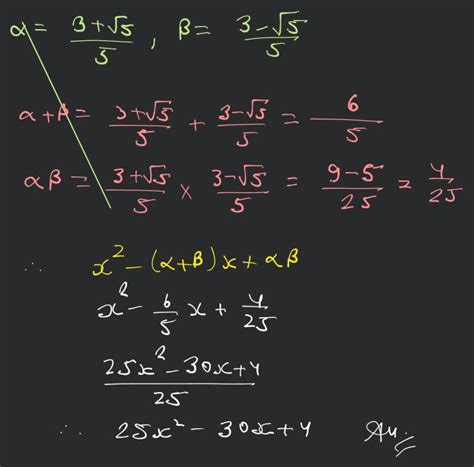 α = (3+√5)/5 , β = (3-√5)/5
α+β = (3+√5)/5 + (3-√5)/5 = 6/5
αβ = (3+√5)/5 × (3-√5)/5 = (9-5)/25 = 4/25
∴ x² - (α+β)x + αβ
x² - 6/5 x + 4/25
(25x² - 30x + 4)/25
∴ 25x² - 30x + 4 Au.